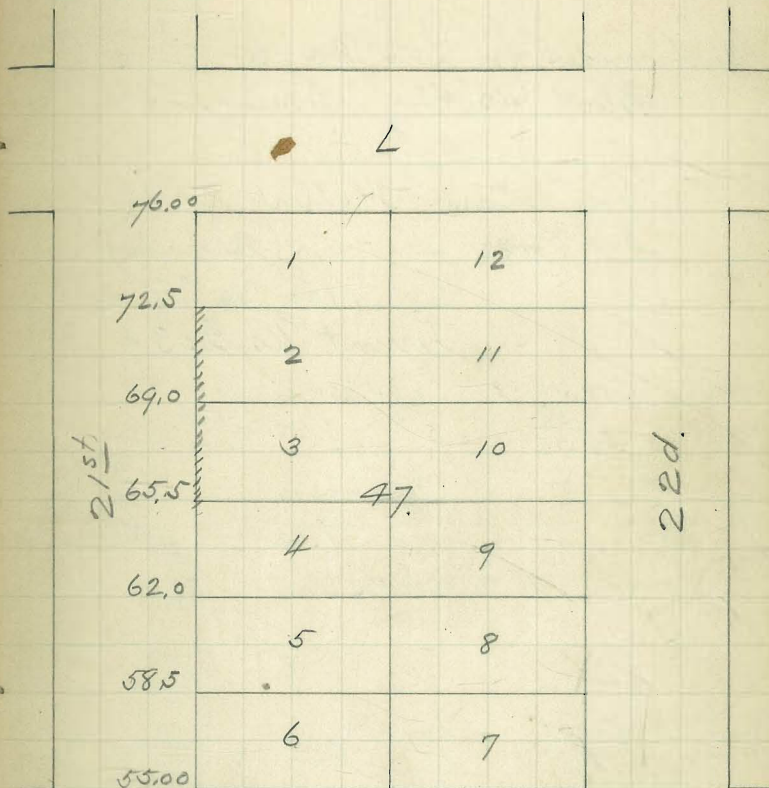 L
76.00
1 12
72.5
2 11
69.0
3 10
21st
65.5
47.
22d.
4 9
62.0
5 8
58.5
6 7
55.00